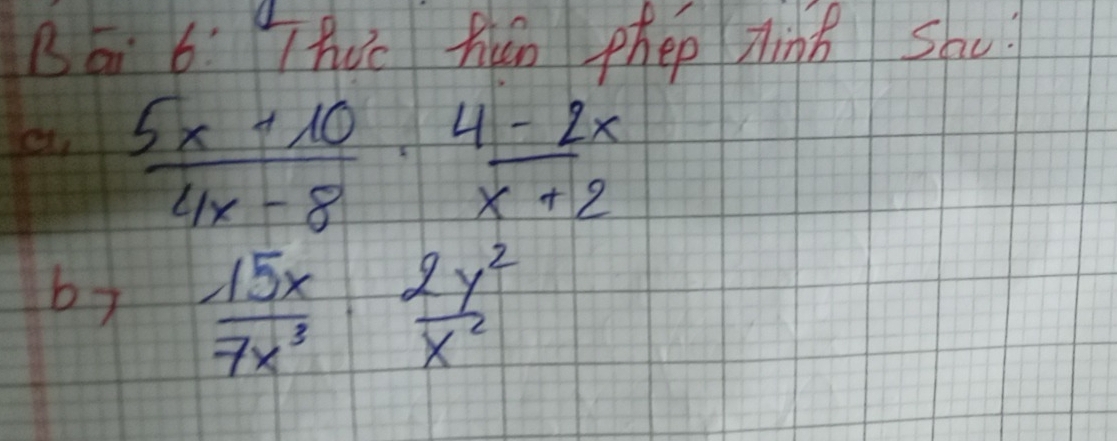 Bài 6: Thực hiện phép tính sau:
a, 5x + 10 / 4x - 8 . 4 - 2x / x + 2
b, 15x / 7x³ . 2y² / x²